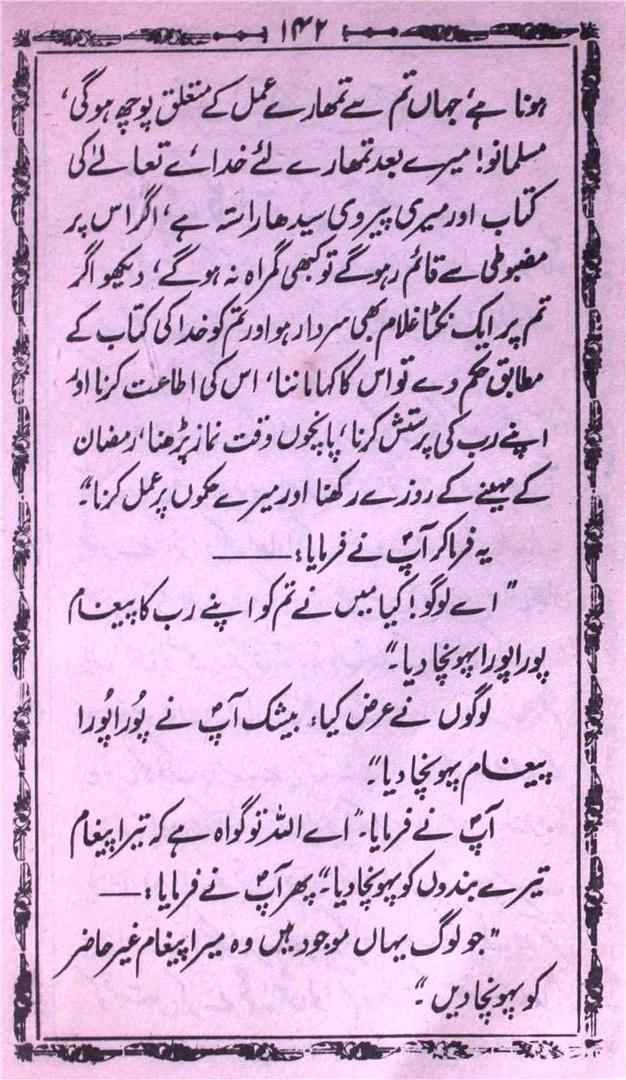 ۱۴۲
ہونا ہے، جہاں تم سے تمھارے عمل کے متعلق پوچھ ہوگی،
مسلمانو! میرے بعد تمھارے لئے خدائے تعالےٰ کی
کتاب اور میری پیروی سیدھا راستہ ہے، اگر اس پر
مضبوطی سے قائم رہوگے تو کبھی گمراہ نہ ہوگے، دیکھو اگر
تم پر ایک نکٹا غلام بھی سردار ہو اور تم کو خدا کی کتاب کے
مطابق حکم دے تو اس کا کہا ماننا، اس کی اطاعت کرنا اور
اپنے رب کی پرستش کرنا، پانچوں وقت نماز پڑھنا، رمضان
کے مہینے کے روزے رکھنا اور میرے حکموں پر عمل کرنا۔"
یہ فرما کر آپؐ نے فرمایا:ــــــــ
"اے لوگو! کیا میں نے تم کو اپنے رب کا پیغام
پورا پورا پہونچا دیا۔"
لوگوں نے عرض کیا: بیشک آپؐ نے پُورا پُورا
پیغام پہونچا دیا"۔
آپؐ نے فرمایا۔ "اے اللہ تو گواہ ہے کہ تیرا پیغام
تیرے بندوں کو پہونچا دیا۔" پھر آپؐ نے فرمایا:ــــ
"جو لوگ یہاں موجود ہیں وہ میرا پیغام غیر حاضر
کو پہونچا دیں۔"